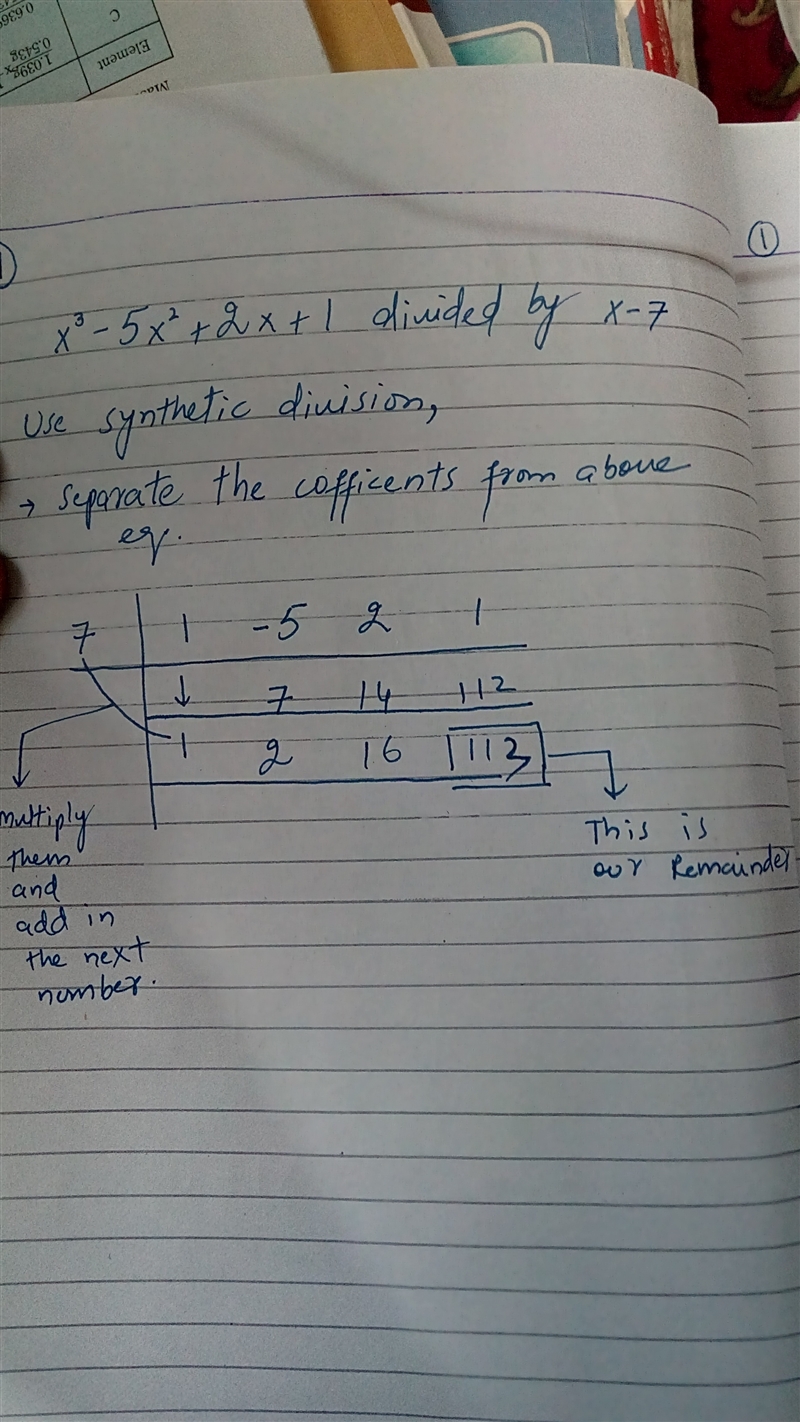 Element
C
1.039g
0.543g
①
x³ - 5x² + 2x + 1 divided by x - 7
Use synthetic division,
→ separate the cofficents from above
eq.
7 | 1 -5 2 1
↓ 7 14 112
1 2 16 113
multiply
them
and
add in
the next
number.
This is
our Remainder